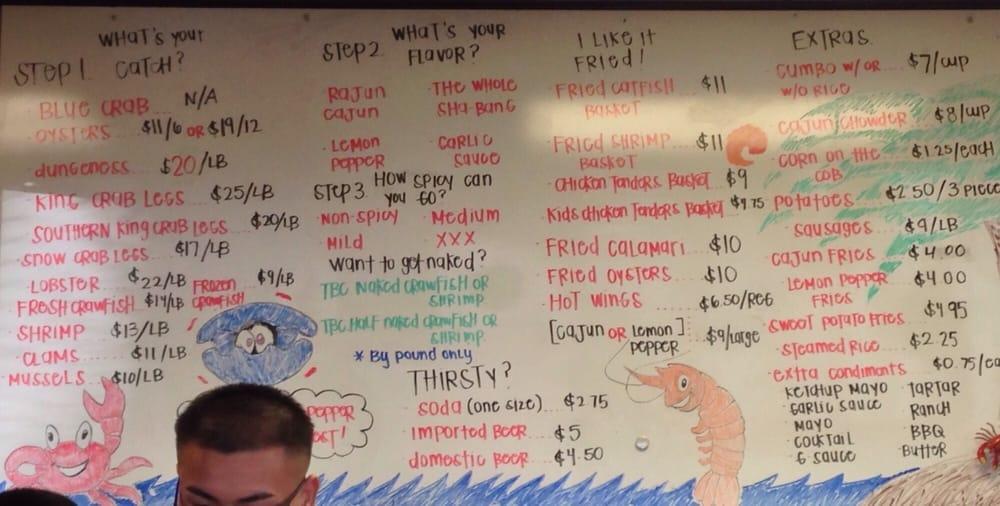 WHAT'S YOUR
STEP 1. CATCH?
BLUE CRAB N/A
OYSTERS $11/6 OR $19/12
DUNGENESS $20/LB
KING CRAB LEGS $25/LB
SOUTHERN KING CRAB LEGS $20/LB
SNOW CRAB LEGS $17/LB
LOBSTER $22/LB FROZEN $9/LB
FRESH CRAWFISH $14/LB CRAWFISH
SHRIMP $13/LB
CLAMS $11/LB
MUSSELS $10/LB
PEPPER
WHAT'S YOUR
STEP 2. FLAVOR?
RAJUN THE WHOLE
CAJUN SHA-BANG
LEMON GARLIC
PEPPER SAUCE
STEP 3. HOW SPICY CAN
YOU GO?
NON-SPICY MEDIUM
MILD XXX
WANT TO GET NAKED?
TBC NAKED CRAWFISH OR
SHRIMP
TBC HALF NAKED CRAWFISH OR
SHRIMP
* By pound only
THIRSTY?
SODA (ONE SIZE) $2.75
IMPORTED BEER $5
DOMESTIC BEER $4.50
I LIKE IT
FRIED!
FRIED CATFISH $11
BASKET
FRIED SHRIMP $11
BASKET
CHICKEN TENDERS BASKET $9
KIDS CHICKEN TENDERS BASKET $4.75
FRIED CALAMARI $10
FRIED OYSTERS $10
HOT WINGS $6.50/REG
[CAJUN OR LEMON] $9/large
PEPPER
EXTRAS
GUMBO W/ OR $7/CUP
W/O RICE
CAJUN CHOWDER $8/CUP
CORN ON THE $1.25/each
COB
POTATOES $2.50/3 PIECE
SAUSAGES $9/LB
CAJUN FRIES $4.00
LEMON PEPPER $4.00
FRIES
SWEET POTATO FRIES $4.95
STEAMED RICE $2.25
EXTRA CONDIMENTS $0.75/ea
KETCHUP MAYO TARTAR
GARLIC SAUCE RANCH
MAYO BBQ
COCKTAIL BUTTER
6 SAUCE